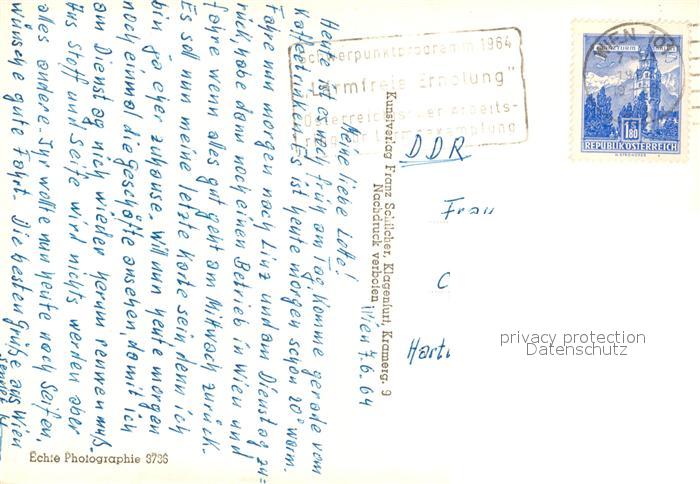 Wien 7.6.64
Meine liebe Lotte!
Heute ist es noch früh am Tag, komme gerade vom
Kaffeetrinken. Es ist heute morgen schon 20° warm.
Fahre nun morgen nach Linz und am Dienstag zu-
rück, habe dann noch einen Betrieb in Wien und
fahre wenn alles gut geht am Mittwoch zurück.
Es soll nun meine letzte Karte sein denn ich
bin ja eher zuhause. Will nun heute morgen
noch einmal die Geschäfte ansehen, damit ich
am Dienstag nich wieder herum rennen muß.
Aus Stoff und Seife wird nichts werden aber
alles andere. Ihr wollte nun heute nach Seifen.
wünsche gute Fahrt. Die besten Grüße aus Wien
sendet
Kunstverlag Franz Schilcher, Klagenfurt, Kramerg. 9
Nachdruck verboten
Echte Photographie 3736
Schwerpunktprogramm 1964
"Lärmfreie Erholung"
Österreichischer Arbeits-
ring für Lärmbekämpfung
WIEN
1 S
1.80
REPUBLIK ÖSTERREICH
DDR
Frau
Hart
privacy protection
Datenschutz